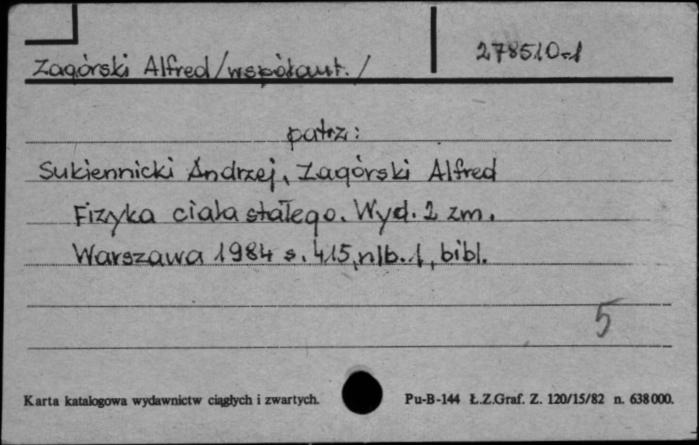 Zagórski Alfred /współaut./ 278510-1
patrz:
Sukiennicki Andrzej, Zagórski Alfred
Fizyka ciała stałego. Wyd. 2 zm.
Warszawa 1984 s. 415, nlb. 1, bibl.
5
Karta katalogowa wydawnictw ciągłych i zwartych. Pu-B-144 Ł.Z.Graf. Z. 120/15/82 n. 638000.